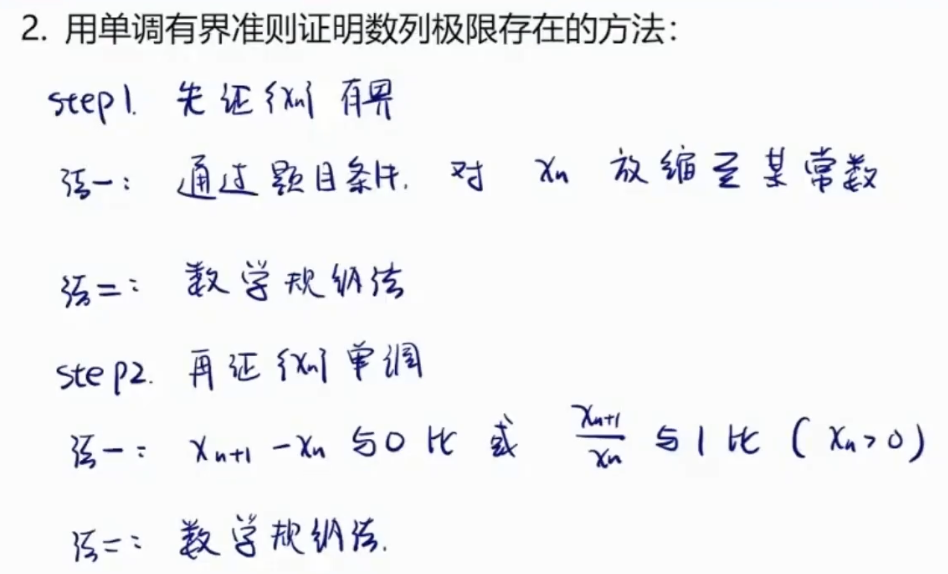 2. 用单调有界准则证明数列极限存在的方法：
step1. 先证{xn}有界
法一：通过题目条件. 对 xn 放缩至某常数
法二：数学规纳法
step2. 再证{xn}单调
法一：xn+1 - xn 与0比 或 xn+1/xn 与1比 (xn>0)
法二：数学规纳法.